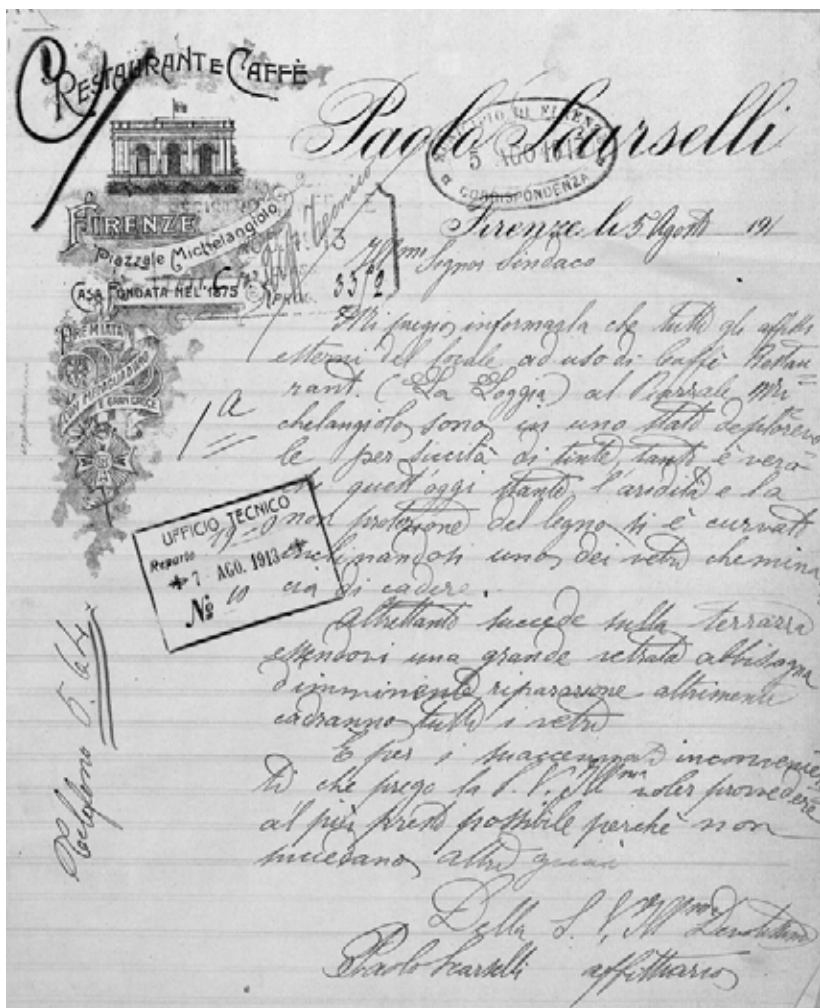 RESTAURANT E CAFFÈ
Paolo Scarselli
FIRENZE
Piazzale Michelangiolo
CASA FONDATA NEL 1875
PREMIATA
CON MEDAGLIA D'ORO
E GRAN CROCE
MUNICIPIO DI FIRENZE
5 AGO 1913
CORRISPONDENZA
Firenze, li 5 Agosto 191
Ill.mo Signor Sindaco
3572
Mi pregio informarla che tutti gli affissi
esterni del locale ad uso di Caffè Restau
rant. (La Loggia) al Piazzale Mi
chelangiolo, sono in uno stato deplorevo
le per siccità di tinte, tanto è vero
che quest'oggi stante l'aridità e la
non protezione del legno si è curvato
inclinandosi uno dei vetri che minac
cia di cadere.
1a
UFFICIO TECNICO
Reparto
7 AGO. 1913
No 10
Altrettanto succede sulla terrazza
essendovi una grande vetrata abbisogna
d'imminente riparazione altrimenti
cadranno tutti i vetri
E per i suaccennati inconvenien
ti che prego la S. V. Ill.ma voler provvedere
al più presto possibile perchè non
succedano altri guai
Della S. V. Ill.ma Devotissimo
Paolo Scarselli affittuario
Telefono